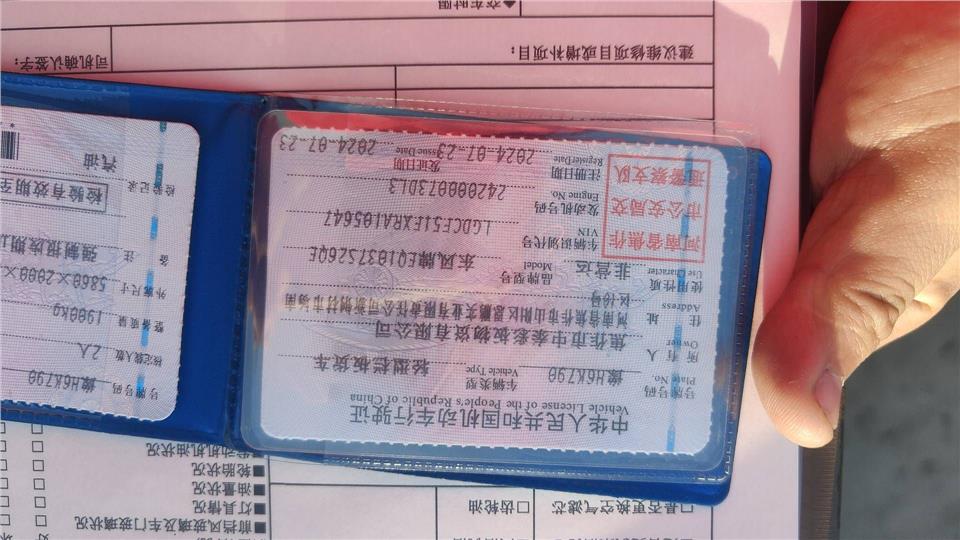 中华人民共和国机动车行驶证
Vehicle License of the People's Republic of China
号牌号码 豫H6K790 车辆类型 轻型栏板货车
Plate No. Vehicle Type
所有人
Owner
住址
Address
使用性质 非营运 品牌型号 东风牌EQ1037S26QE
Use Character Model
河南省焦作市公安局交通警察支队
车辆识别代号 LGDCF51FXRA105647
VIN
发动机号码 242000073DL3
Engine No.
注册日期 2024-07-23 发证日期 2024-07-23
Register Date Issue Date
号牌号码 豫H6K790
核定载人数 2人
整备质量 1900kg
外廓尺寸 5860×2000×
备注 强制报废期
检验记录 检验有效期至
汽油
建议维修项目或增补项目:
司机确认签字:
◆交车时间
□是否更换空气滤芯
□齿轮油
■前挡风玻璃及车门玻璃状况
■灯具情况
■油量状况
■轮胎状况
■发动机油状况